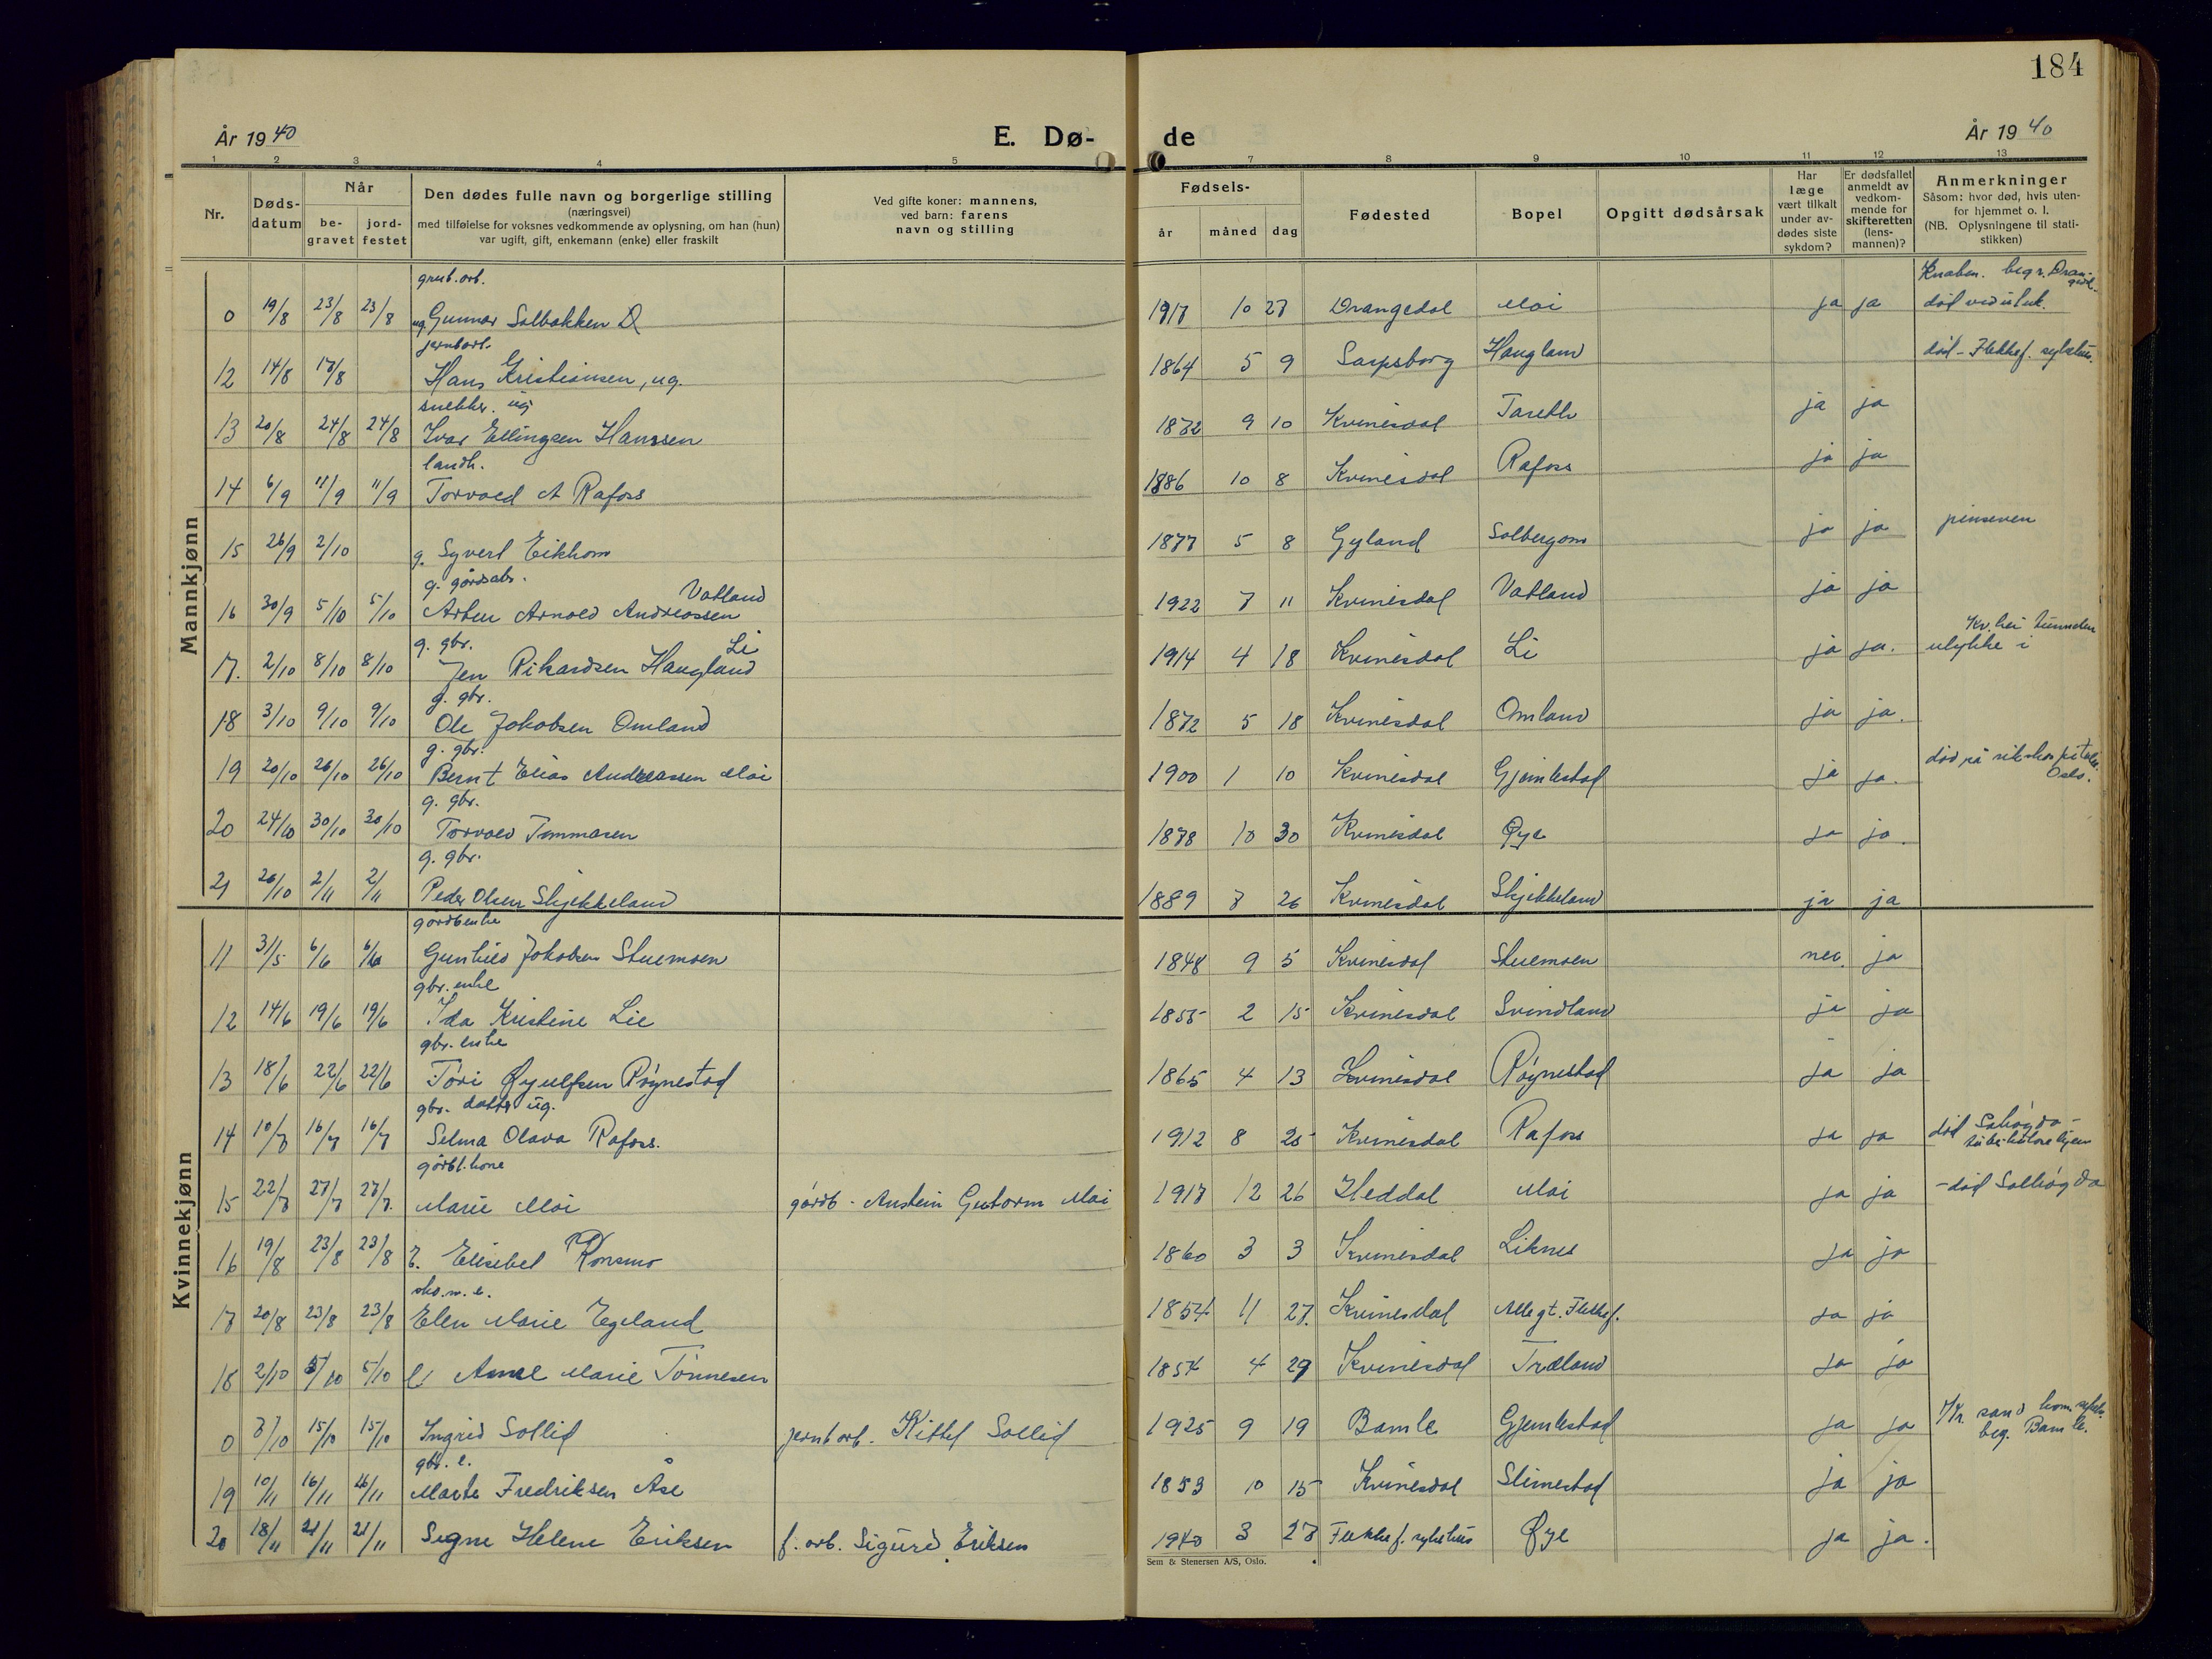 184
År 1940
E. Dø-
de
År 1940
1 2 3 4 5 7 8 9 10 11 12 13
Nr.
Døds-
datum
Når
be-
gravet
jord-
festet
Den dødes fulle navn og borgerlige stilling
(næringsvei)
med tilføielse for voksnes vedkommende av oplysning, om han (hun)
var ugift, gift, enkemann (enke) eller fraskilt
Ved gifte koner: mannens,
ved barn: farens
navn og stilling
Fødsels-
år måned dag
Fødested
Bopel
Opgitt dødsårsak
Har
læge
vært tilkalt
under av-
dødes siste
sykdom?
Er dødsfallet
anmeldt av
vedkom-
mende for
skifteretten
(lens-
mannen)?
Anmerkninger
Såsom: hvor død, hvis uten-
for hjemmet o. l.
(NB. Oplysningene til stati-
stikken)
Mannkjønn
grub. arb. Knaben. begr. Dran-
gedal
0 19/8 23/8 23/8 ug Gunnar Solbakken 1917 10 27 Drangedal Moi ja ja død ved uluk.
jernbarb.
12 14/8 17/8 Hans Kristiansen, ug. 1864 5 9 Sarpsborg Haugland død - Flekkef. sykehus.
snekker. ug
13 20/8 24/8 24/8 Ivar Ellingsen Hanssen 1872 9 10 Kvinesdal ja ja
landh.
14 6/9 11/9 11/9 Torvald A Rafoss 1886 10 8 Kvinesdal Rafoss ja ja
15 26/9 2/10 g. Syvert Eikhom 1877 5 8 Gyland ja ja
g. gårdsarb. Vatland
16 30/9 5/10 5/10 Arnold Andreassen 1922 7 11 Kvinesdal Vatland ja ja
g. gbr. Li Kv. hei tunnelen
17. 2/10 8/10 8/10 Jen Rikardsen Haugland 1914 4 18 Kvinesdal Li ja ja. ulykke i
g. gbr.
18 3/10 9/10 9/10 Ole Jakobsen Omland 1872 5 18 Kvinesdal Omland ja ja.
g. gbr.
19 20/10 26/10 26/10 Bernt Elias Andreassen Moi 1900 1 10 Kvinesdal Gjemlestad ja ja. død på rikshospitalet
Oslo.
g. gbr.
20 24/10 30/10 30/10 Torvald Tommasen 1878 10 30 Kvinesdal Øye ja ja.
g. gbr.
21 26/10 2/11 2/11 Peder Olsen Skjekkeland 1889 7 26 Kvinesdal Skjekkeland ja ja
Kvinnekjønn
gardbenke
11 31/5 6/6 6/6 Gunhild Jakobsen Stuemoen 1848 9 5 Kvinesdal Stuemoen nei. ja
gbr. enke
12 14/6 19/6 19/6 Ida Kristine Lie 1855 2 15 Kvinesdal Svindland ja ja
gbr. enke
13 18/6 22/6 22/6 Tori Øyulfsen Røynestad 1865 4 13 Kvinesdal Røynestad ja ja
gbr. datter ug.
14 10/7 16/7 16/7 Selma Olava Rafoss. 1912 8 25 Kvinesdal Rafoss ja ja død Solhøgda -
tuberkulosehjem
gårdb. kone
15 22/7 27/7 27/7. Marie Moi gårdb - Austein Gutorm Moi 1917 12 26 Heddal Moi ja ja - død Solhøgda
16 19/8 23/8 23/8 E. Elisebet Konsmo 1860 3 3 Kvinesdal Liknes ja ja
sko. m. e.
17 20/8 23/8 23/8 Elen Marie Egeland 1854 11 27. Kvinesdal Allegt. Flekkef. ja ja
18 2/10 5/10 5/10 E Anne Marie Tønnesen 1854 4 29 Kvinesdal Træland ja ja
0 3/10 15/10 15/10 Ingrid Sollid jernb arb. Kittel Sollid 1925 9 19 Bamle Gjemlestad ja ja
beg. Bamle.
gbr. e.
19 10/11 16/11 16/11 Marte Fredriksen Åse 1853 10 15 Kvinesdal Slimestad ja ja
20 18/11 21/11 21/11 Signe Helene Eriksen f. arb. Sigurd Eriksen 1940 3 27 Flekkef. sykehus Øye ja ja.
Sem & Stenersen A/S, Oslo.